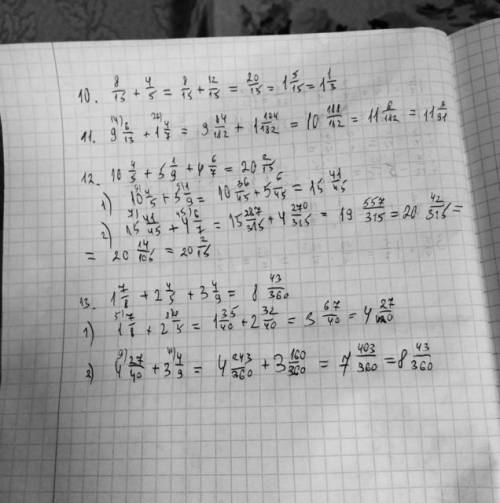 10. 8/15 + 4/5 = 8/15 + 12/15 = 20/15 = 1 5/15 = 1 1/3
11. 9 14) 6/13 + 1 26) 4/7 = 9 84/182 + 1 104/182 = 10 188/182 = 11 6/182 = 11 3/91
12. 10 4/5 + 5 1/9 + 4 6/7 = 20 2/15
1) 10 4/5 + 5 5) 1/9 = 10 36/45 + 5 5/45 = 15 41/45
2) 15 7) 41/45 + 4 45) 6/7 = 15 287/315 + 4 270/315 = 19 557/315 = 20 42/315 =
= 20 14/105 = 20 2/15
13. 1 7/8 + 2 4/5 + 3 4/9 = 8 43/360
1) 1 5) 7/8 + 2 4/5 = 1 35/40 + 2 32/40 = 3 67/40 = 4 27/40
2) 4 9) 27/40 + 3 4/9 = 4 243/360 + 3 160/360 = 7 403/360 = 8 43/360